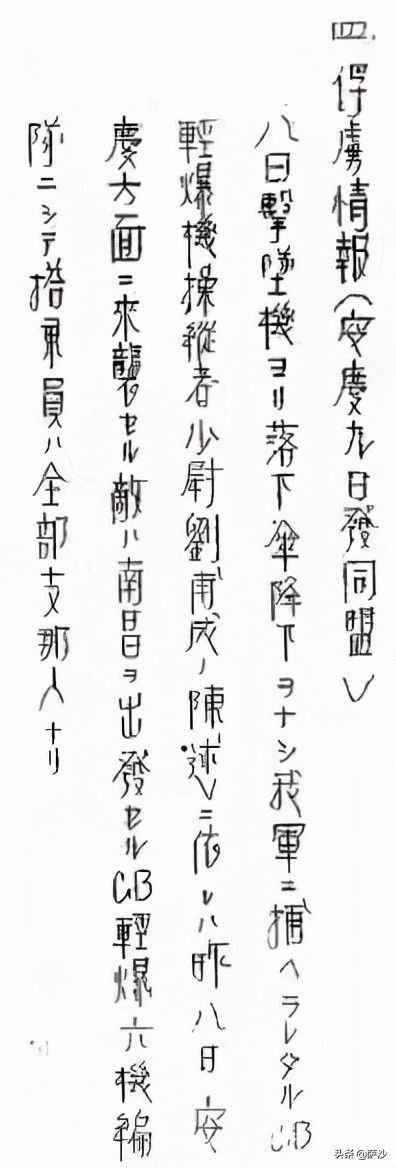 四、俘虜情報(安慶九日發同盟)
八日擊墜機ヨリ落下傘降下ヲナシ我軍ニ捕ヘラレタルCB
輕爆機操縱者少尉劉甫成ノ陳述ニ依レハ昨八日安
慶方面ニ來襲セル敵ハ南昌ヲ出發セルCB輕爆六機編
隊ニシテ搭乘員ハ全部支那人ナリ
头条 @萨沙